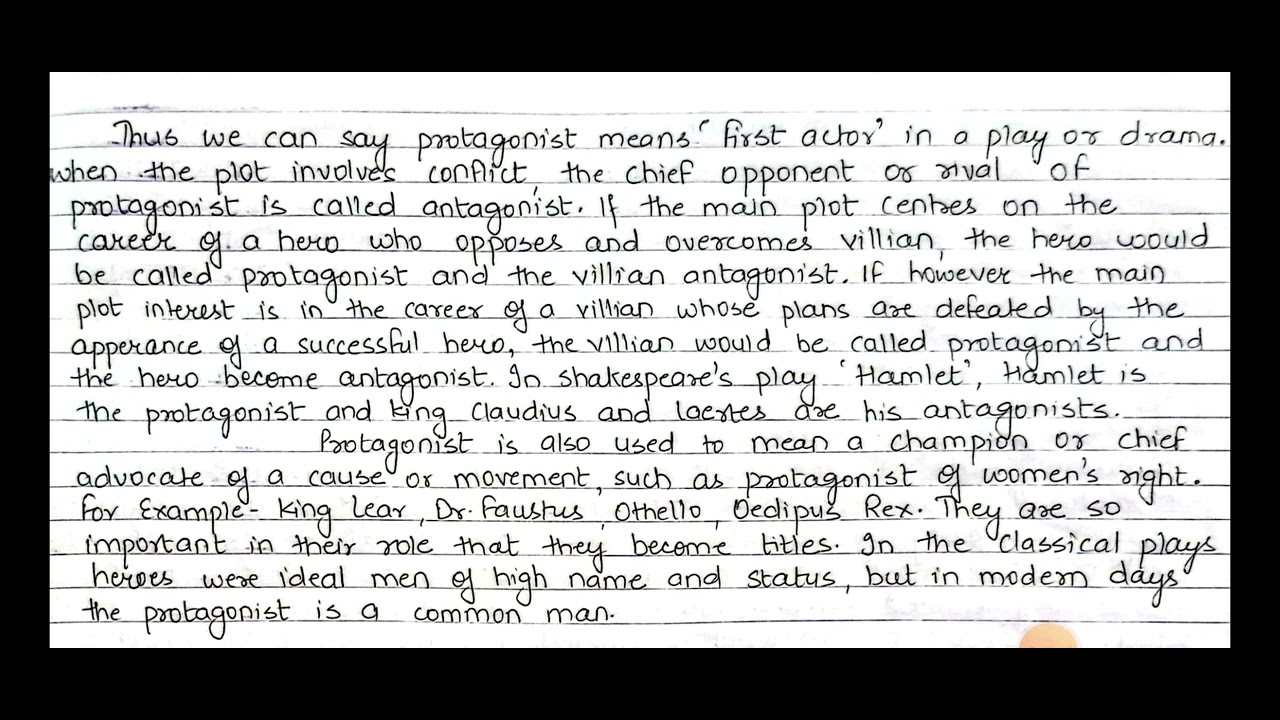 Thus we can say protagonist means 'first actor' in a play or drama.
when the plot involves conflict, the chief opponent or rival of
protagonist is called antagonist. If the main plot centres on the
career of a hero who opposes and overcomes villian, the hero would
be called protagonist and the villian antagonist. If however the main
plot interest is in the career of a villian whose plans are defeated by the
apperance of a successful hero, the villian would be called protagonist and
the hero become antagonist. In shakespeare's play 'Hamlet', Hamlet is
the protagonist and king Claudius and laertes are his antagonists.
Protagonist is also used to mean a champion or chief
advocate of a cause or movement, such as protagonist of women's right.
For Example- king lear, Dr. Faustus, Othello, Oedipus Rex. They are so
important in their role that they become titles. In the classical plays
heroes were ideal men of high name and status, but in modern days
the protagonist is a common man.